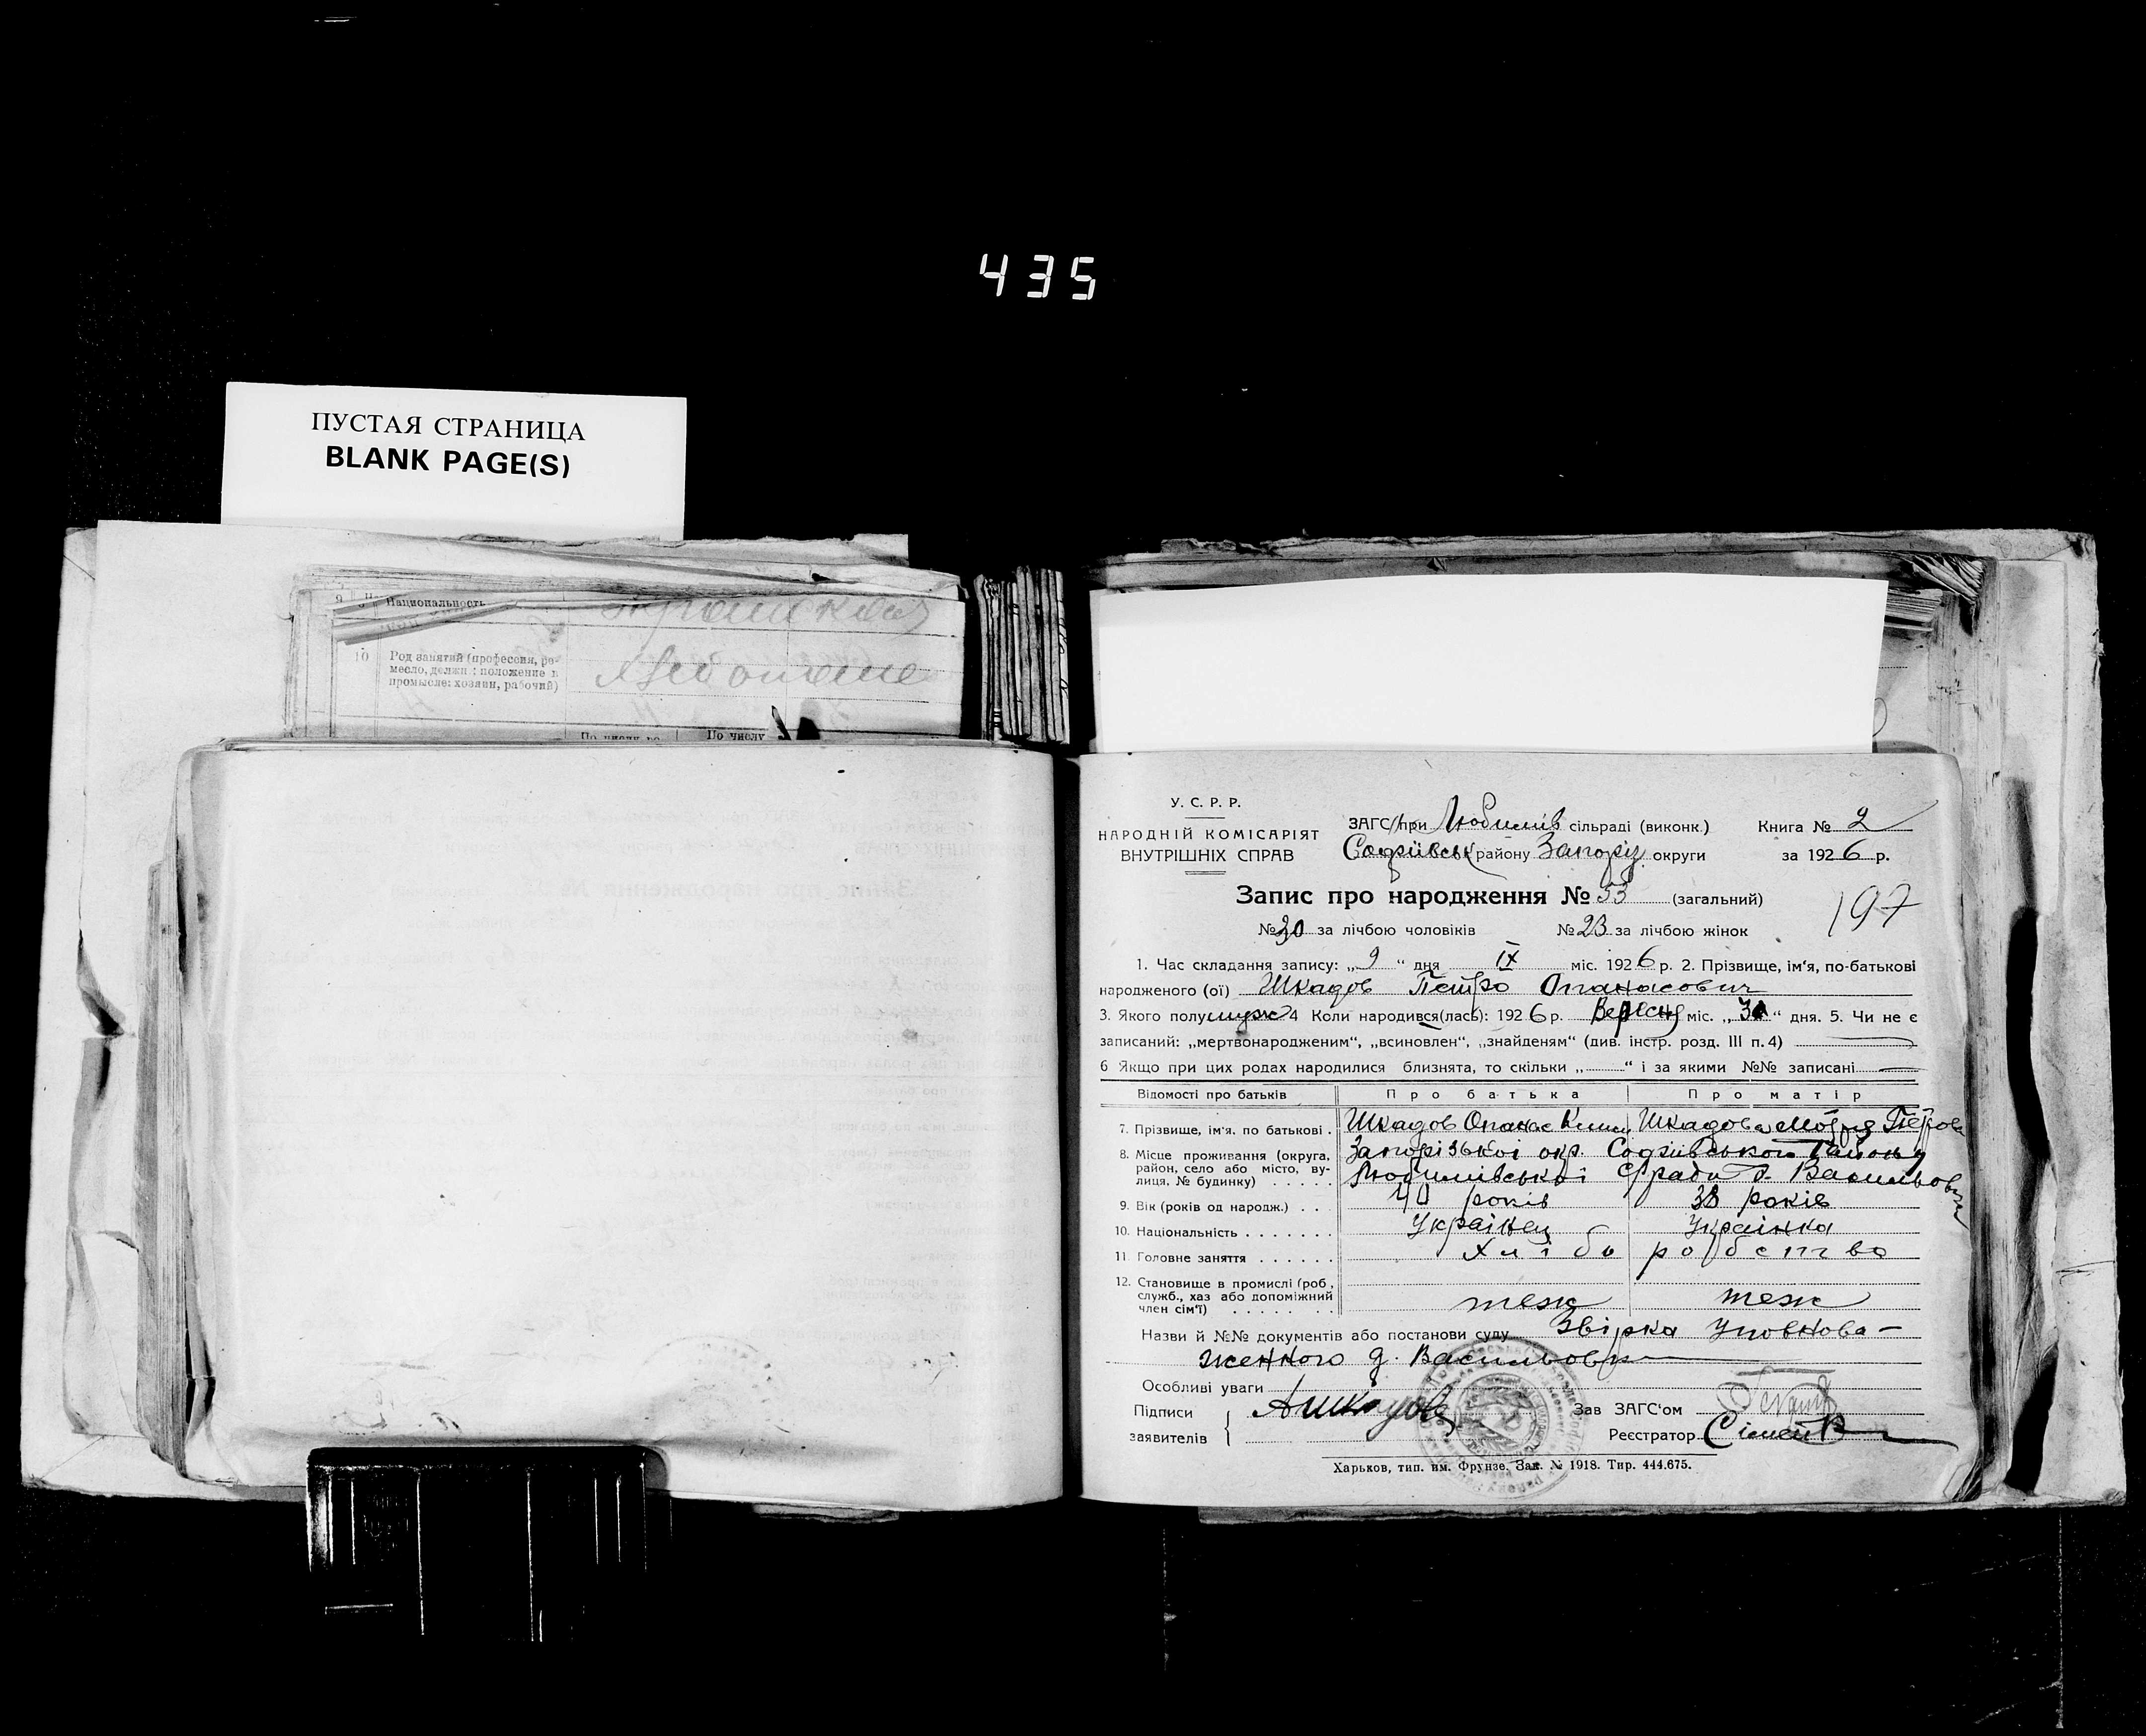 435
ПУСТАЯ СТРАНИЦА
BLANK PAGE(S)
9 Национальность
10 Род занятий (профессия, ре-
месло, должн.: положение в
промысле: хозяин, рабочий)
По числу
У. С. Р. Р.
НАРОДНІЙ КОМІСАРІЯТ
ВНУТРІШНІХ СПРАВ
ЗАГС/при Любимів сільраді (виконк.) Книга № 2
Софіївськ району Запоріз. округи за 1926 р.
Запис про народження № 53 (загальний)
197
№ 30 за лічбою чоловіків № 23 за лічбою жінок
1. Час складання запису: „9“ дня IX міс. 1926 р. 2. Прізвище, ім'я, по-батькові
народженого (ої) Шкадов Петро Опанасович
3. Якого полу муж 4 Коли народився(лась): 1926 р. Вересня міс. „ “ дня. 5. Чи не є
записаний: „мертвонародженим“, „всиновлен“, „знайденям“ (див. інстр. розд. III п. 4)
6 Якщо при цих родах народилися близнята, то скільки „ “ і за якими №№ записані
Відомості про батьків Про батька Про матір
7. Прізвище, ім'я, по батькові . Шкадов Опанас Шкадова Петров
8. Місце проживання (округа, Запорізької окр. Софіївського Району
район, село або місто, ву- Любимівської с/ради д. Васильовки
лиця, № будинку) . . . . .
9. Вік (років од народж.) . . 40 років 38 років
10. Національність . . . . . . . Українец Українка
11. Головне заняття . . . . . . Хлібо робство
12. Становище в промислі (роб.,
служб., хаз або допоміжний
член сім'ї) . . . . . . . теж теж
Назви й №№ документів або постанови суду Звірка Уповнова-
женного д. Васильовки
Особливі уваги
Підписи АШкадов Зав ЗАГС'ом
заявителів Реєстратор
Харьков, тип. им. Фрунзе. Зак. № 1918. Тир. 444.675.